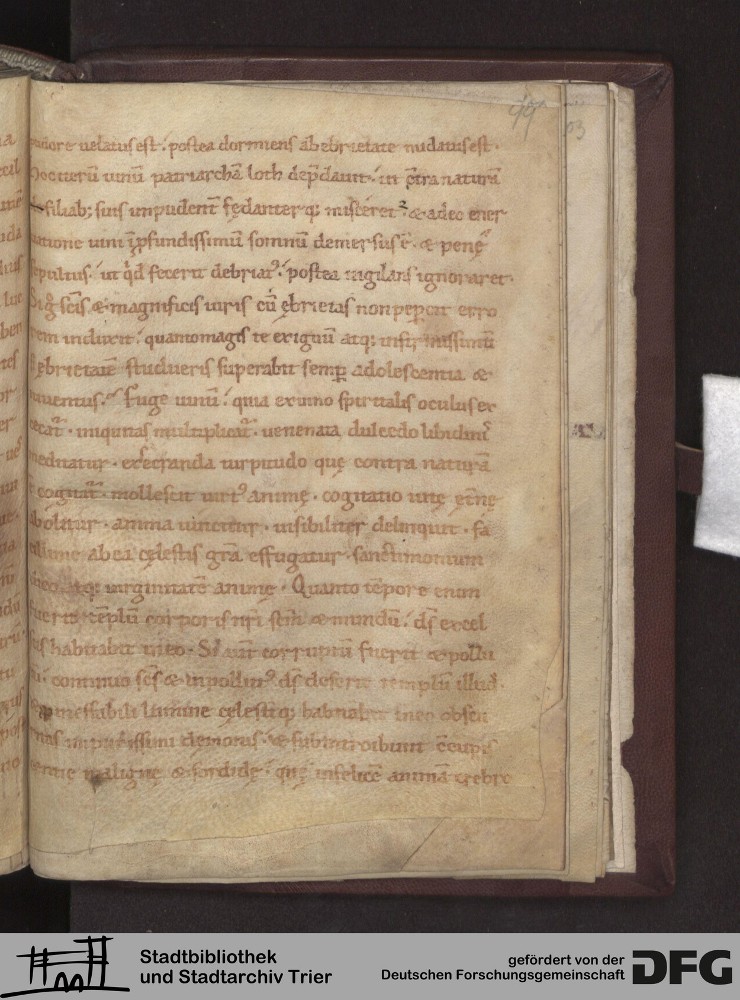 99
93
uelatus est. postea dormiens ab ebrietate nudatus est.
uinū patriarchā loth dep̄dauit. ut c̄tra naturā
filiab; suis impudent̄ fędanter q; misceret᷒. & adeo ener
uini ī p̄fundissimū somnū demersus ē. & penę
sepultus. ut qd̄ fecerit debriat᷒. postea uigilans ignoraret.
Si g̊ sc̄is & magnificis uiris cū ębrietas non pep̄cit erro
rem induxit. quamomagis te exiguū atq; infirmissimū
ębrietatē studueris superabit semp̄ adolescentia &
iuuentus. Fuge uinū. quia ex uino sp̄iritalis oculus ex
cecat᷒. iniquitas multiplicat᷒. uenenata dulcedo libidinis
meditatur. execranda turpitudo quę contra naturā
cogitat᷒. mollescit uirt᷒ animę. cogitatio uitę et̄nę
abolitur. anima uincitur. uisibiliter delinquit. fa
cillime ab ea cęlestis gr̄a effugatur. sanctimonium
atq; uirginitatē animę. Quanto tēpore enim
fuerit tēplū corporis nr̄i sc̄m & mundū. ds̄ excel
sus habitabit in eo. Si aūt corruptū fuerit & pollu
continuo sc̄s & inpollut᷒ ds̄ deserit templū illud.
ineffabili lumine cęlestiq; habitabit in eo obscu
ritas impurissimi demonis. & subintroibunt
malignę & sordidę. quę infelicē animā crebro
Stadtbibliothek
und Stadtarchiv Trier
gefördert von der
Deutschen Forschungsgemeinschaft
DFG